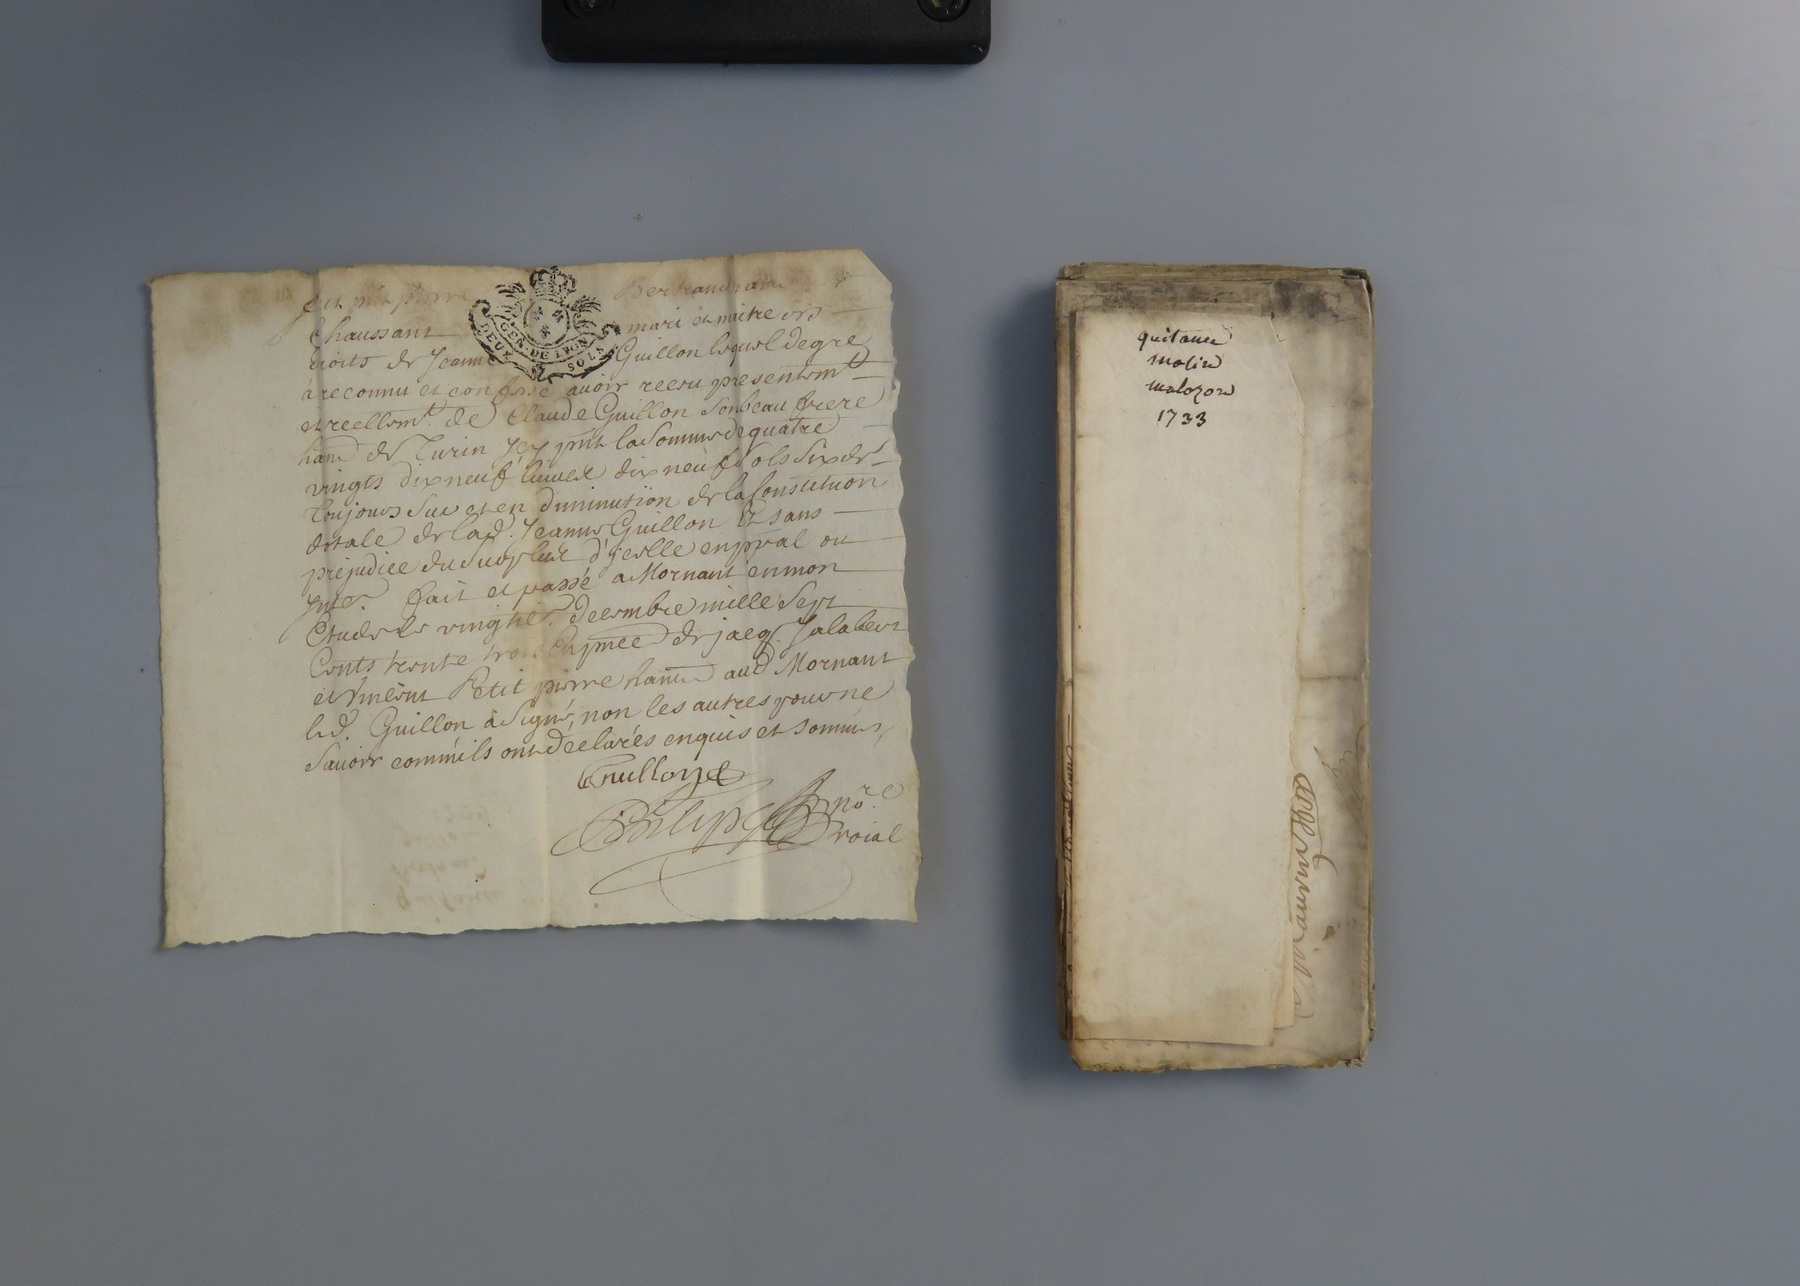 fut pnt pierre Bertrand
Chaussant mari et maitre des
GEN. DE LYON
DEUX SOLS
droits de Jeanne Guillon lequel de gre
a reconnu et confessé avoir receu presentemt
et reellemt. de Claude Guillon son beau frere
hant de Turin icy pnt la somme de quatre
vingts dix neuf livres dix neuf sols six drs
toujours sur et en diminution de la Constitution
dotale de lad. Jeanne Guillon Et sans
prejudice du surplus d'icelle en ppal ou
Inter. fait et passé a Mornant en mon
Etude le vingtie. decembre mille sept
Cents trente trois En pnce de jacq. Jalabert
et Vincent Petit pierre hants aud Mornant
led. Guillon a signé, non les autres pour ne
Savoir comm'ils ont declarés enquis et sommés
Guillon
nore
roial
quitance
1733